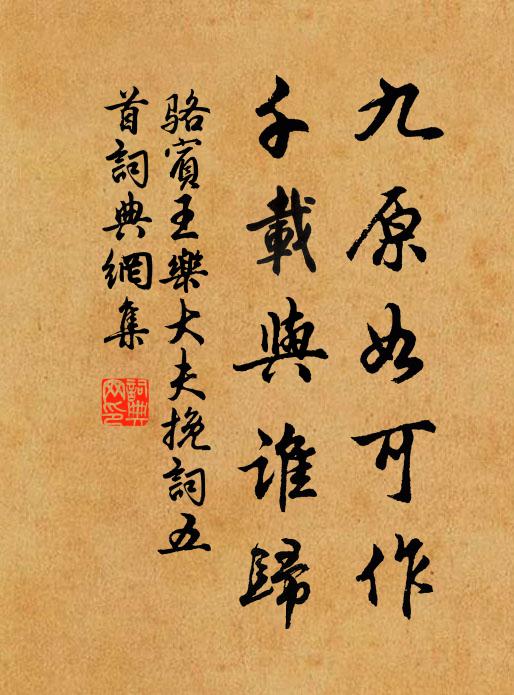 九原如可作
千載與誰歸
駱賓王樂大夫挽詞五
首詞典網集
詞典
网印